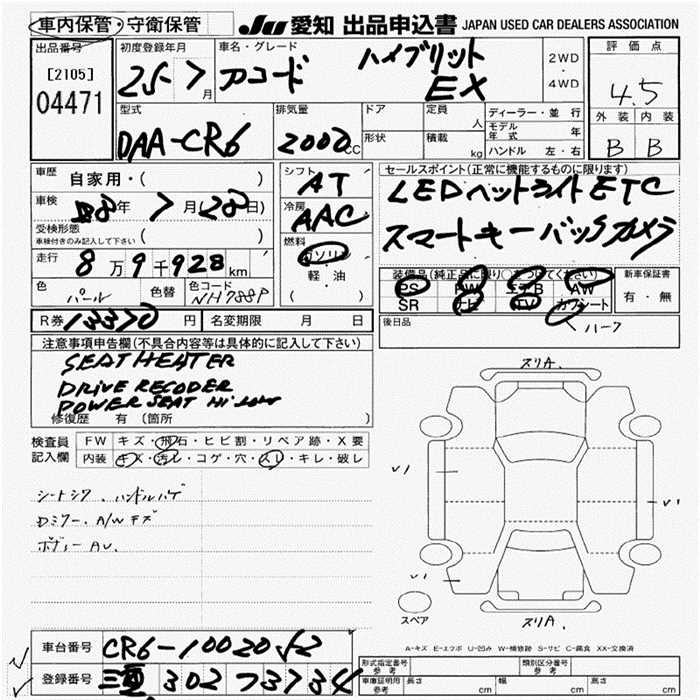 車内保管・守衛保管
JU 愛知 出品申込書 JAPAN USED CAR DEALERS ASSOCIATION
出品番号
[2105]
04471
初度登録年月
25 7月
車名・グレード
アコード
ハイブリット
EX
2WD
・
4WD
評価点
4.5
外装 内装
B B
型式
DAA-CR6
排気量
2000CC
ドア
形状
定員 人
積載 kg
ディーラー・並行
モデル年式 年
ハンドル 左・右
車歴 自家用・( )
車検 28年 7月(28日)
受検形態
車検付きのみ記入して下さい ( )
走行 8万9千928km
色 パール
色替
色コード NH788P
シフト AT
冷房 AAC
燃料
ガソリン
軽・油
( )
セールスポイント(正常に機能するものに限ります)
LEDヘットライト ETC
スマートキー バックカメラ
装備品(純正品に限り○をつけてください)
PS PW エアB AW
SR ナビ TV カワシート
ハーフ
新車保証書
有・無
後日品
R券 13370円
名変期限 月 日
注意事項申告欄(不具合内容等は具体的に記入して下さい)
SEAT HEATER
DRIVE RECODER
POWER SEAT Hi LOW
修復歴 有 (箇所 )
検査員
記入欄
FW キズ・飛石・ヒビ割・リペア跡・X要
内装 キズ・汚レ・コゲ・穴・スレ・キレ・破レ
シートシワ、ハンドルハゲ
Dミラー、A/Wキズ
ボディーAU、
スリA.
v1
v1
v1
スペア
スリA.
A-キズ E-エクボ U-凹み W-補修跡 S-サビ C-腐食 XX-交換済
車台番号 CR6-1002052
登録番号 三重 302 ツ 3734
形式指定番号
参考
類別区分番号
参考
車庫証明用
参考
長さ cm
幅 cm
高さ cm